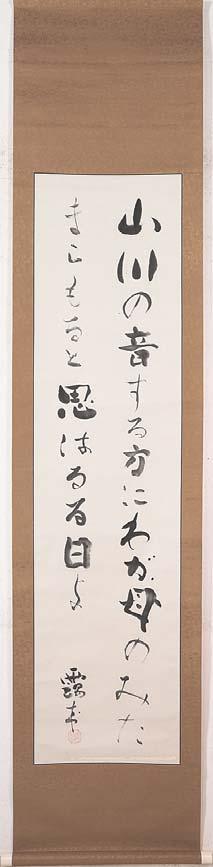 山川の音する方にわが母のみた
まこもると思はるる日よ